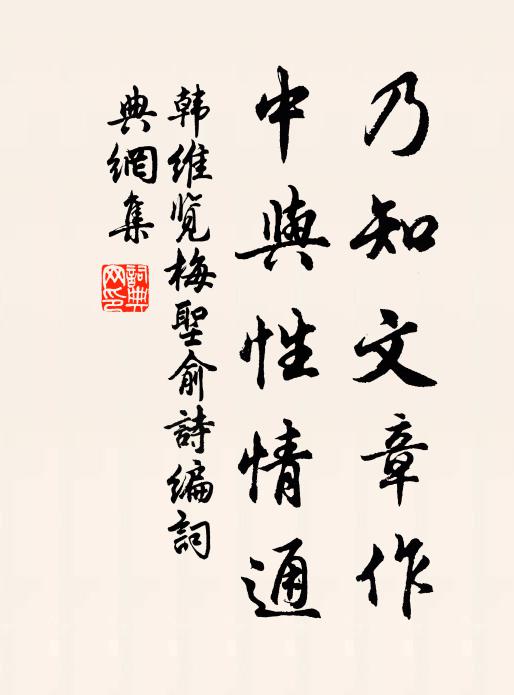 乃知文章作
中與性情通
韩维览梅聖俞詩编詞
典網集
詞典
网印